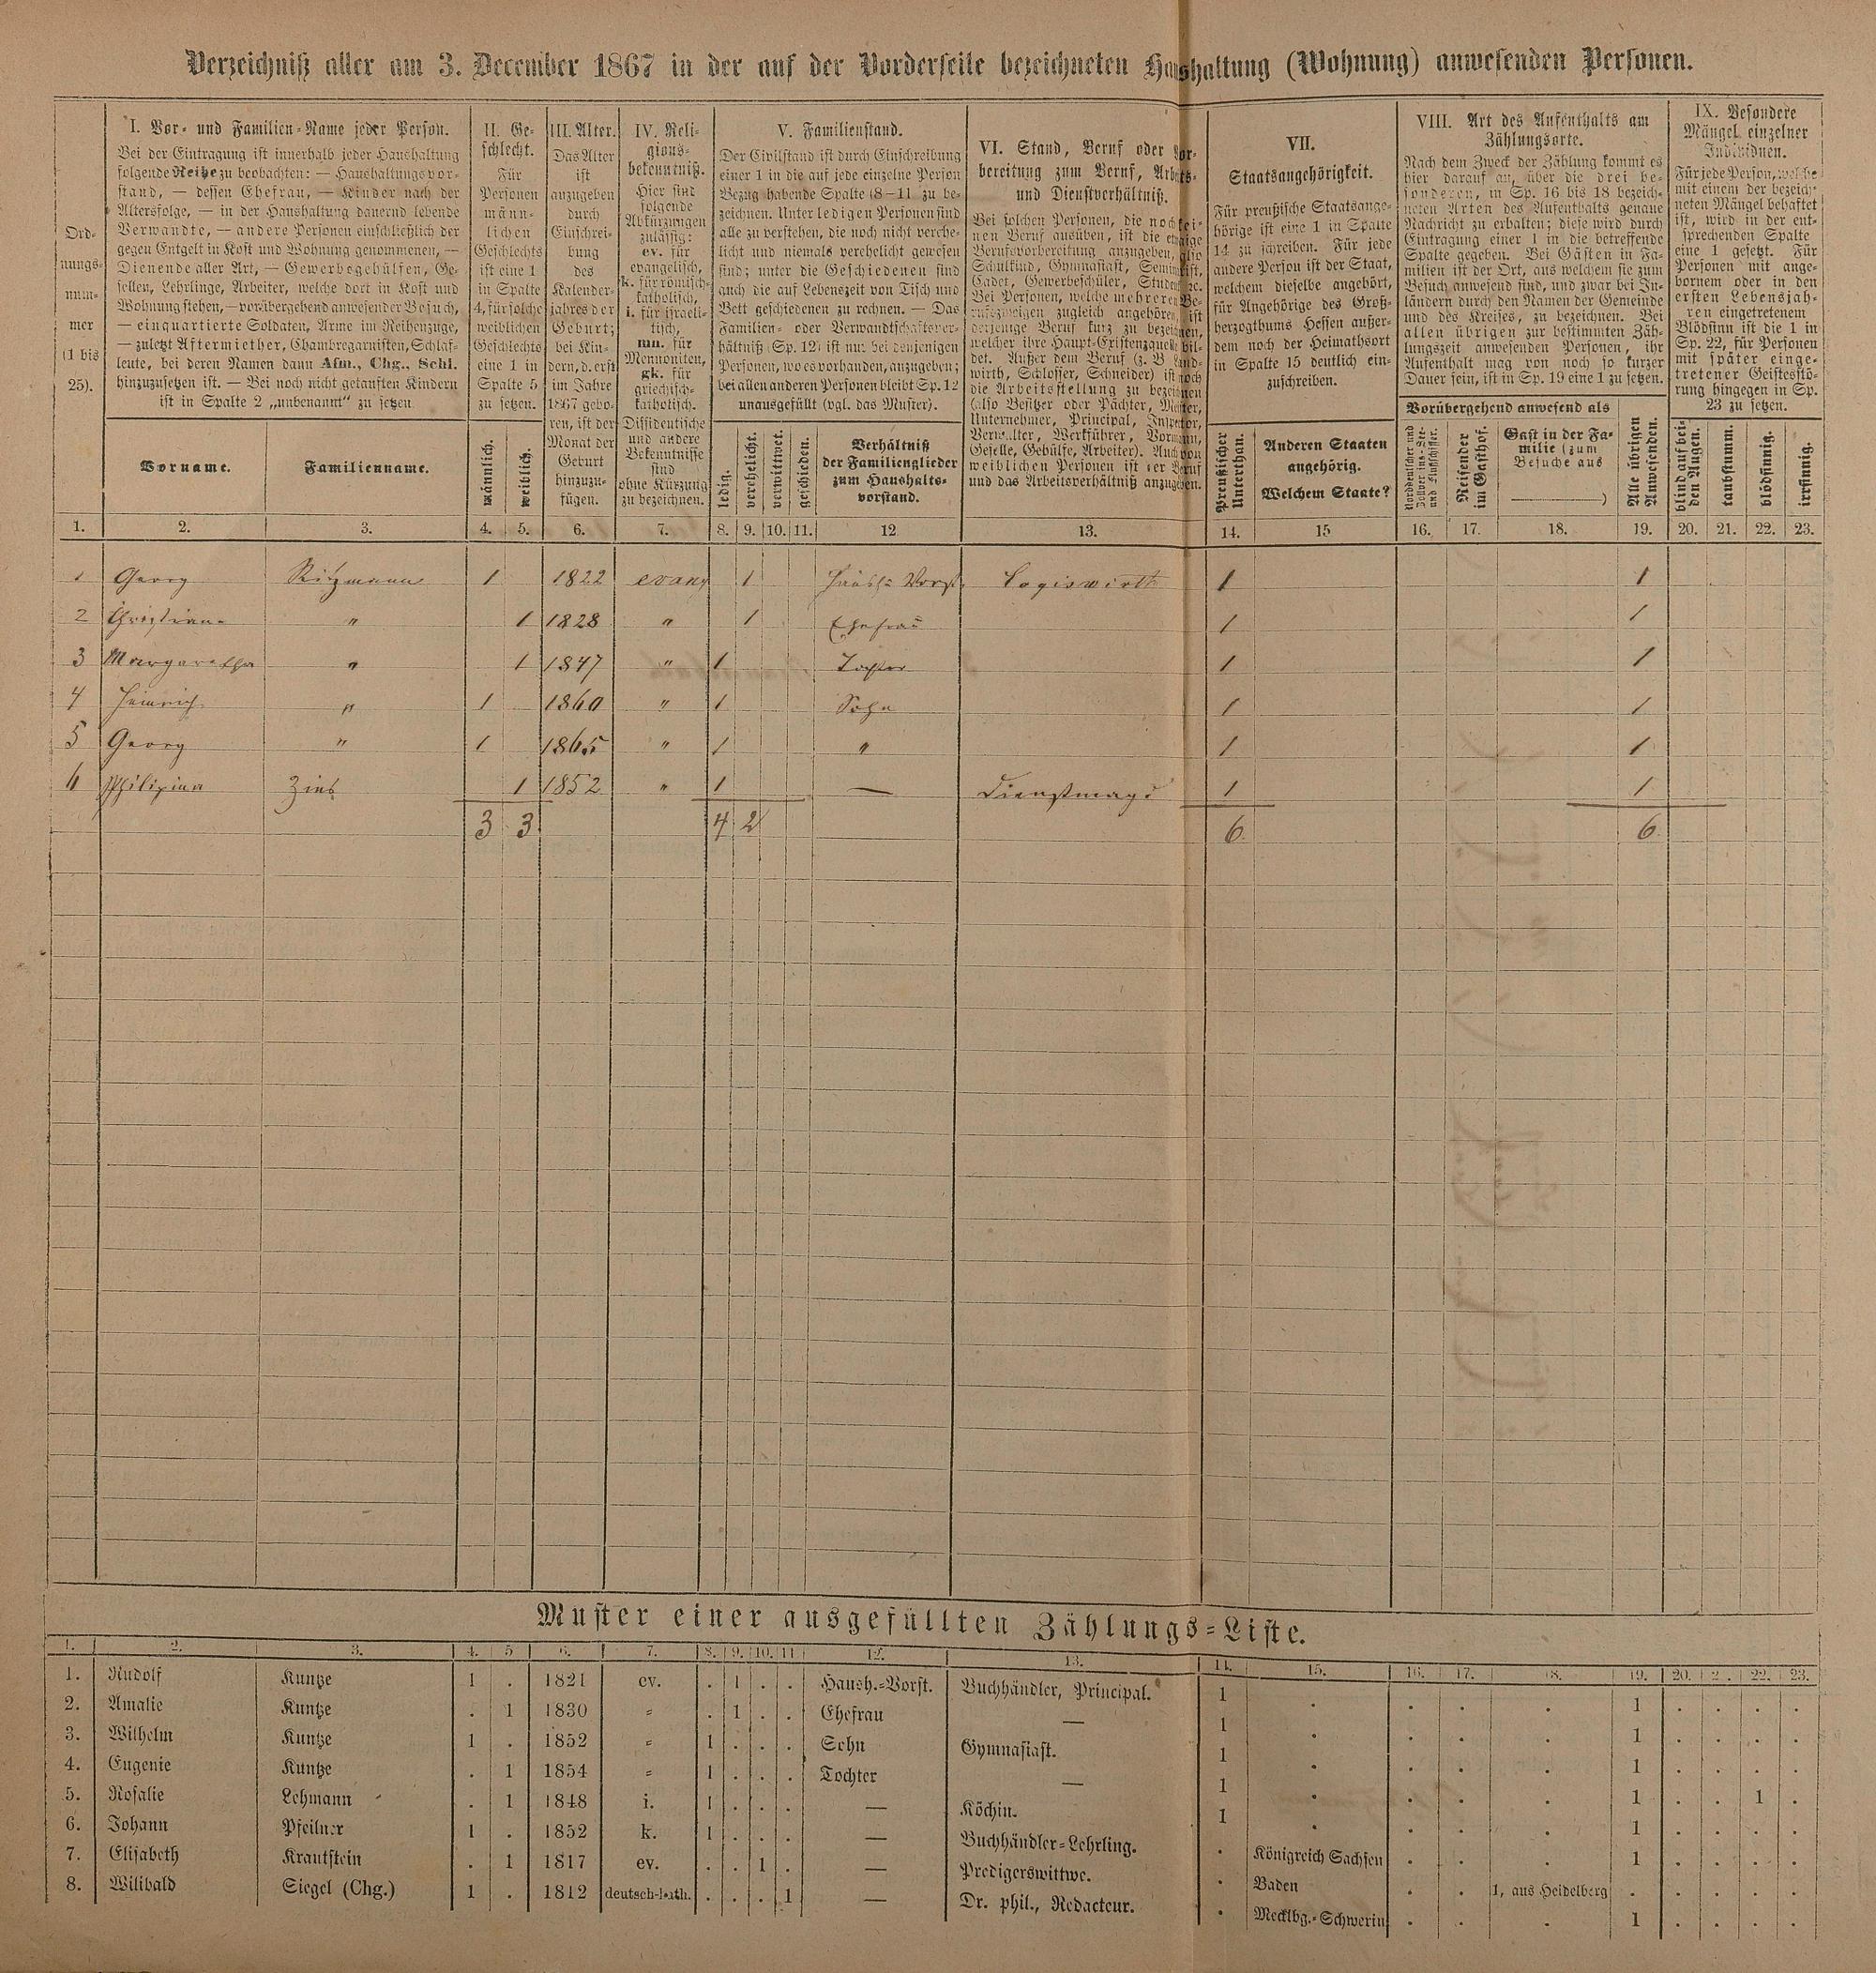 Verzeichniß aller am 3. December 1867 in der auf der Vorderseite bezeichneten Haushaltung (Wohnung) anwesenden Personen.
Ord-
nungs-
num-
mer
(1 bis
25).
I. Vor- und Familien-Name jeder Person.
Bei der Eintragung ist innerhalb jeder Haushaltung
folgende Reihe zu beobachten: — Haushaltungsvor-
stand, — dessen Ehefrau, — Kinder nach der
Altersfolge, — in der Haushaltung dauernd lebende
Verwandte, — andere Personen einschließlich der
gegen Entgelt in Kost und Wohnung genommenen, —
Dienende aller Art, — Gewerbegehülfen, Ge-
sellen, Lehrlinge, Arbeiter, welche dort in Kost und
Wohnung stehen, — vorübergehend anwesender Besuch,
— einquartierte Soldaten, Arme im Reihenzuge,
— zuletzt Aftermiether, Chambregarnisten, Schlaf-
leute, bei deren Namen dann Afm., Chg., Schl.
hinzuzusetzen ist. — Bei noch nicht getauften Kindern
ist in Spalte 2 „unbenannt“ zu setzen
Vorname.
Familienname.
II. Ge-
schlecht.
Für
Personen
männ-
lichen
Geschlechts
ist eine 1
in Spalte
4, für solche
weiblichen
Geschlechts
eine 1 in
Spalte 5
zu setzen.
männlich.
weiblich.
III. Alter.
Das Alter
ist
anzugeben
durch
Einschrei-
bung
des
Kalender-
jahres der
Geburt;
bei Kin-
dern, d. erst
im Jahre
1867 gebo-
ren, ist der
Monat der
Geburt
hinzuzu-
fügen.
IV. Reli-
gions-
bekenntniß.
Hier sind
folgende
Abkürzungen
zulässig:
ev. für
evangelisch,
k. für römisch-
katholisch,
i. für israeli-
tisch,
mn. für
Mennoniten,
gk. für
griechisch-
katholisch.
Dissidentische
und andere
Bekenntnisse
sind
ohne Kürzung
zu bezeichnen.
V. Familienstand.
Der Civilstand ist durch Einschreibung
einer 1 in die auf jede einzelne Person
Bezug habende Spalte (8—11) zu be-
zeichnen. Unter ledigen Personen sind
alle zu verstehen, die noch nicht verehe-
licht und niemals verehelicht gewesen
sind; unter die Geschiedenen sind
auch die auf Lebenszeit von Tisch und
Bett geschiedenen zu rechnen. — Das
Familien- oder Verwandtschaftsver-
hältniß (Sp. 12) ist nur bei denjenigen
Personen, wo es vorhanden, anzugeben;
bei allen anderen Personen bleibt Sp. 12
unausgefüllt (vgl. das Muster).
ledig.
verehelicht.
verwittwet.
geschieden.
Verhältniß
der Familienglieder
zum Haushalts-
vorstand.
VI. Stand, Beruf oder Vor-
bereitung zum Beruf, Arbeits-
und Dienstverhältniß.
Bei solchen Personen, die noch kei-
nen Beruf ausüben, ist die etwaige
Berufsvorbereitung anzugeben, also
Schulkind, Gymnasiast, Seminarist,
Cadet, Gewerbeschüler, Student ꝛc.
Bei Personen, welche mehreren Be-
rufszweigen zugleich angehören, ist
derjenige Beruf kurz zu bezeichnen,
welcher ihre Haupt-Existenzquelle bil-
det. Außer dem Beruf (z. B. Land-
wirth, Schlosser, Schneider) ist noch
die Arbeitsstellung zu bezeichnen
(also Besitzer oder Pächter, Meister,
Unternehmer, Principal, Inspector,
Verwalter, Werkführer, Vormann,
Geselle, Gehülfe, Arbeiter). Auch von
weiblichen Personen ist der Beruf
und das Arbeitsverhältniß anzugeben.
VII.
Staatsangehörigkeit.
Für preußische Staatsange-
hörige ist eine 1 in Spalte
14 zu schreiben. Für jede
andere Person ist der Staat,
welchem dieselbe angehört,
für Angehörige des Groß-
herzogthums Hessen außer-
dem noch der Heimathsort
in Spalte 15 deutlich ein-
zuschreiben.
Preußischer
Unterthan.
Anderen Staaten
angehörig.
Welchem Staate?
VIII. Art des Aufenthalts am
Zählungsorte.
Nach dem Zweck der Zählung kommt es
hier darauf an, über die drei be-
sonderen, in Sp. 16 bis 18 bezeich-
neten Arten des Aufenthalts genaue
Nachricht zu erhalten; diese wird durch
Eintragung einer 1 in die betreffende
Spalte gegeben. Bei Gästen in Fa-
milien ist der Ort, aus welchem sie zum
Besuch anwesend sind, und zwar bei In-
ländern durch den Namen der Gemeinde
und des Kreises, zu bezeichnen. Bei
allen übrigen zur bestimmten Zäh-
lungszeit anwesenden Personen, ihr
Aufenthalt mag von noch so kurzer
Dauer sein, ist in Sp. 19 eine 1 zu setzen.
Vorübergehend anwesend als
Norddeutscher und
Zollver ins-See-
und Flußschiffer.
Reisender
im Gasthof.
Gast in der Fa-
milie (zum
Besuche aus
)
Alle übrigen
Anwesenden.
IX. Besondere
Mängel einzelner
Individuen.
Für jede Person, welche
mit einem der bezeich-
neten Mängel behaftet
ist, wird in der ent-
sprechenden Spalte
eine 1 gesetzt. Für
Personen mit ange-
bornem oder in den
ersten Lebensjah-
ren eingetretenem
Blödsinn ist die 1 in
Sp. 22, für Personen
mit später einge-
tretener Geistesstö-
rung hingegen in Sp.
23 zu setzen.
blind auf bei-
den Augen.
taubstumm.
blödsinnig.
irrsinnig.
1. 2. 3. 4. 5. 6. 7. 8. 9. 10. 11. 12 13. 14. 15 16. 17. 18. 19. 20. 21. 22. 23.
1 Georg Ritzmann 1 1822 evang 1 Haush= Vorst. Logiswirth 1 1
2 Christiane " 1 1828 " 1 Ehefrau 1 1
3 Margaretha " 1 1847 " 1 Tochter 1 1
4 Heinrich " 1 1860 " 1 Sohn 1 1
5 Georg " 1 1865 " 1 " 1 1
6 Philipina 1 1852 " 1 — Dienstmagd 1 1
3 3 4 2 6 6
Muster einer ausgefüllten Zählungs-Liste.
1. 2. 3. 4. 5 6. 7. 8. 9. 10. 11 12. 13. 14. 15. 16. 17. 18. 19. 20. 2 . 22. 23.
1. Rudolf Kuntze 1 . 1821 ev. . 1 . . Haush.-Vorst. Buchhändler, Principal. 1 . . . . 1 . . . .
2. Amalie Kuntze . 1 1830 „ . 1 . . Ehefrau — 1 . . . . 1 . . . .
3. Wilhelm Kuntze 1 . 1852 „ 1 . . . Sohn Gymnasiast. 1 . . . . 1 . . . .
4. Eugenie Kuntze . 1 1854 „ 1 . . . Tochter — 1 . . . . 1 . . 1 .
5. Rosalie Lehmann . 1 1848 i. 1 . . . — Köchin. 1 . . . . 1 . . . .
6. Johann Pfeilner 1 . 1852 k. 1 . . . — Buchhändler-Lehrling. . Königreich Sachsen . . . 1 . . . .
7. Elisabeth Krautstein . 1 1817 ev. . . 1 . — Predigerswittwe. . Baden . . 1, aus Heidelberg . . . . .
8. Wilibald Siegel (Chg.) 1 . 1812 deutsch-kath. . . . 1 — Dr. phil., Redacteur. . Mecklbg.-Schwerin . . . 1 . . . .